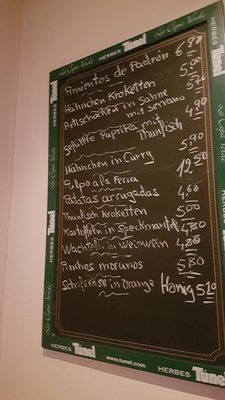 HERBES Túnel
La Copa Verde
Pimientos de Padrón 6,90
Hähnchen Kroketten 5,00
in Sahne
mit serrano
gefüllte Paprika mit 4,90
Thunfisch
Hähnchen in Curry 5,90
Pulpo a la Feria 12,50
Patatas arrugadas 4,60
Thunfisch Kroketten 5,00
Kartoffeln in Speckmantel 4,80
Wachteln in weinwein 4,80
Pinchos morunos 5,80
Schafskäse in Orange Honig 5,10
HERBES Túnel www.tunel.com HERBES Túnel